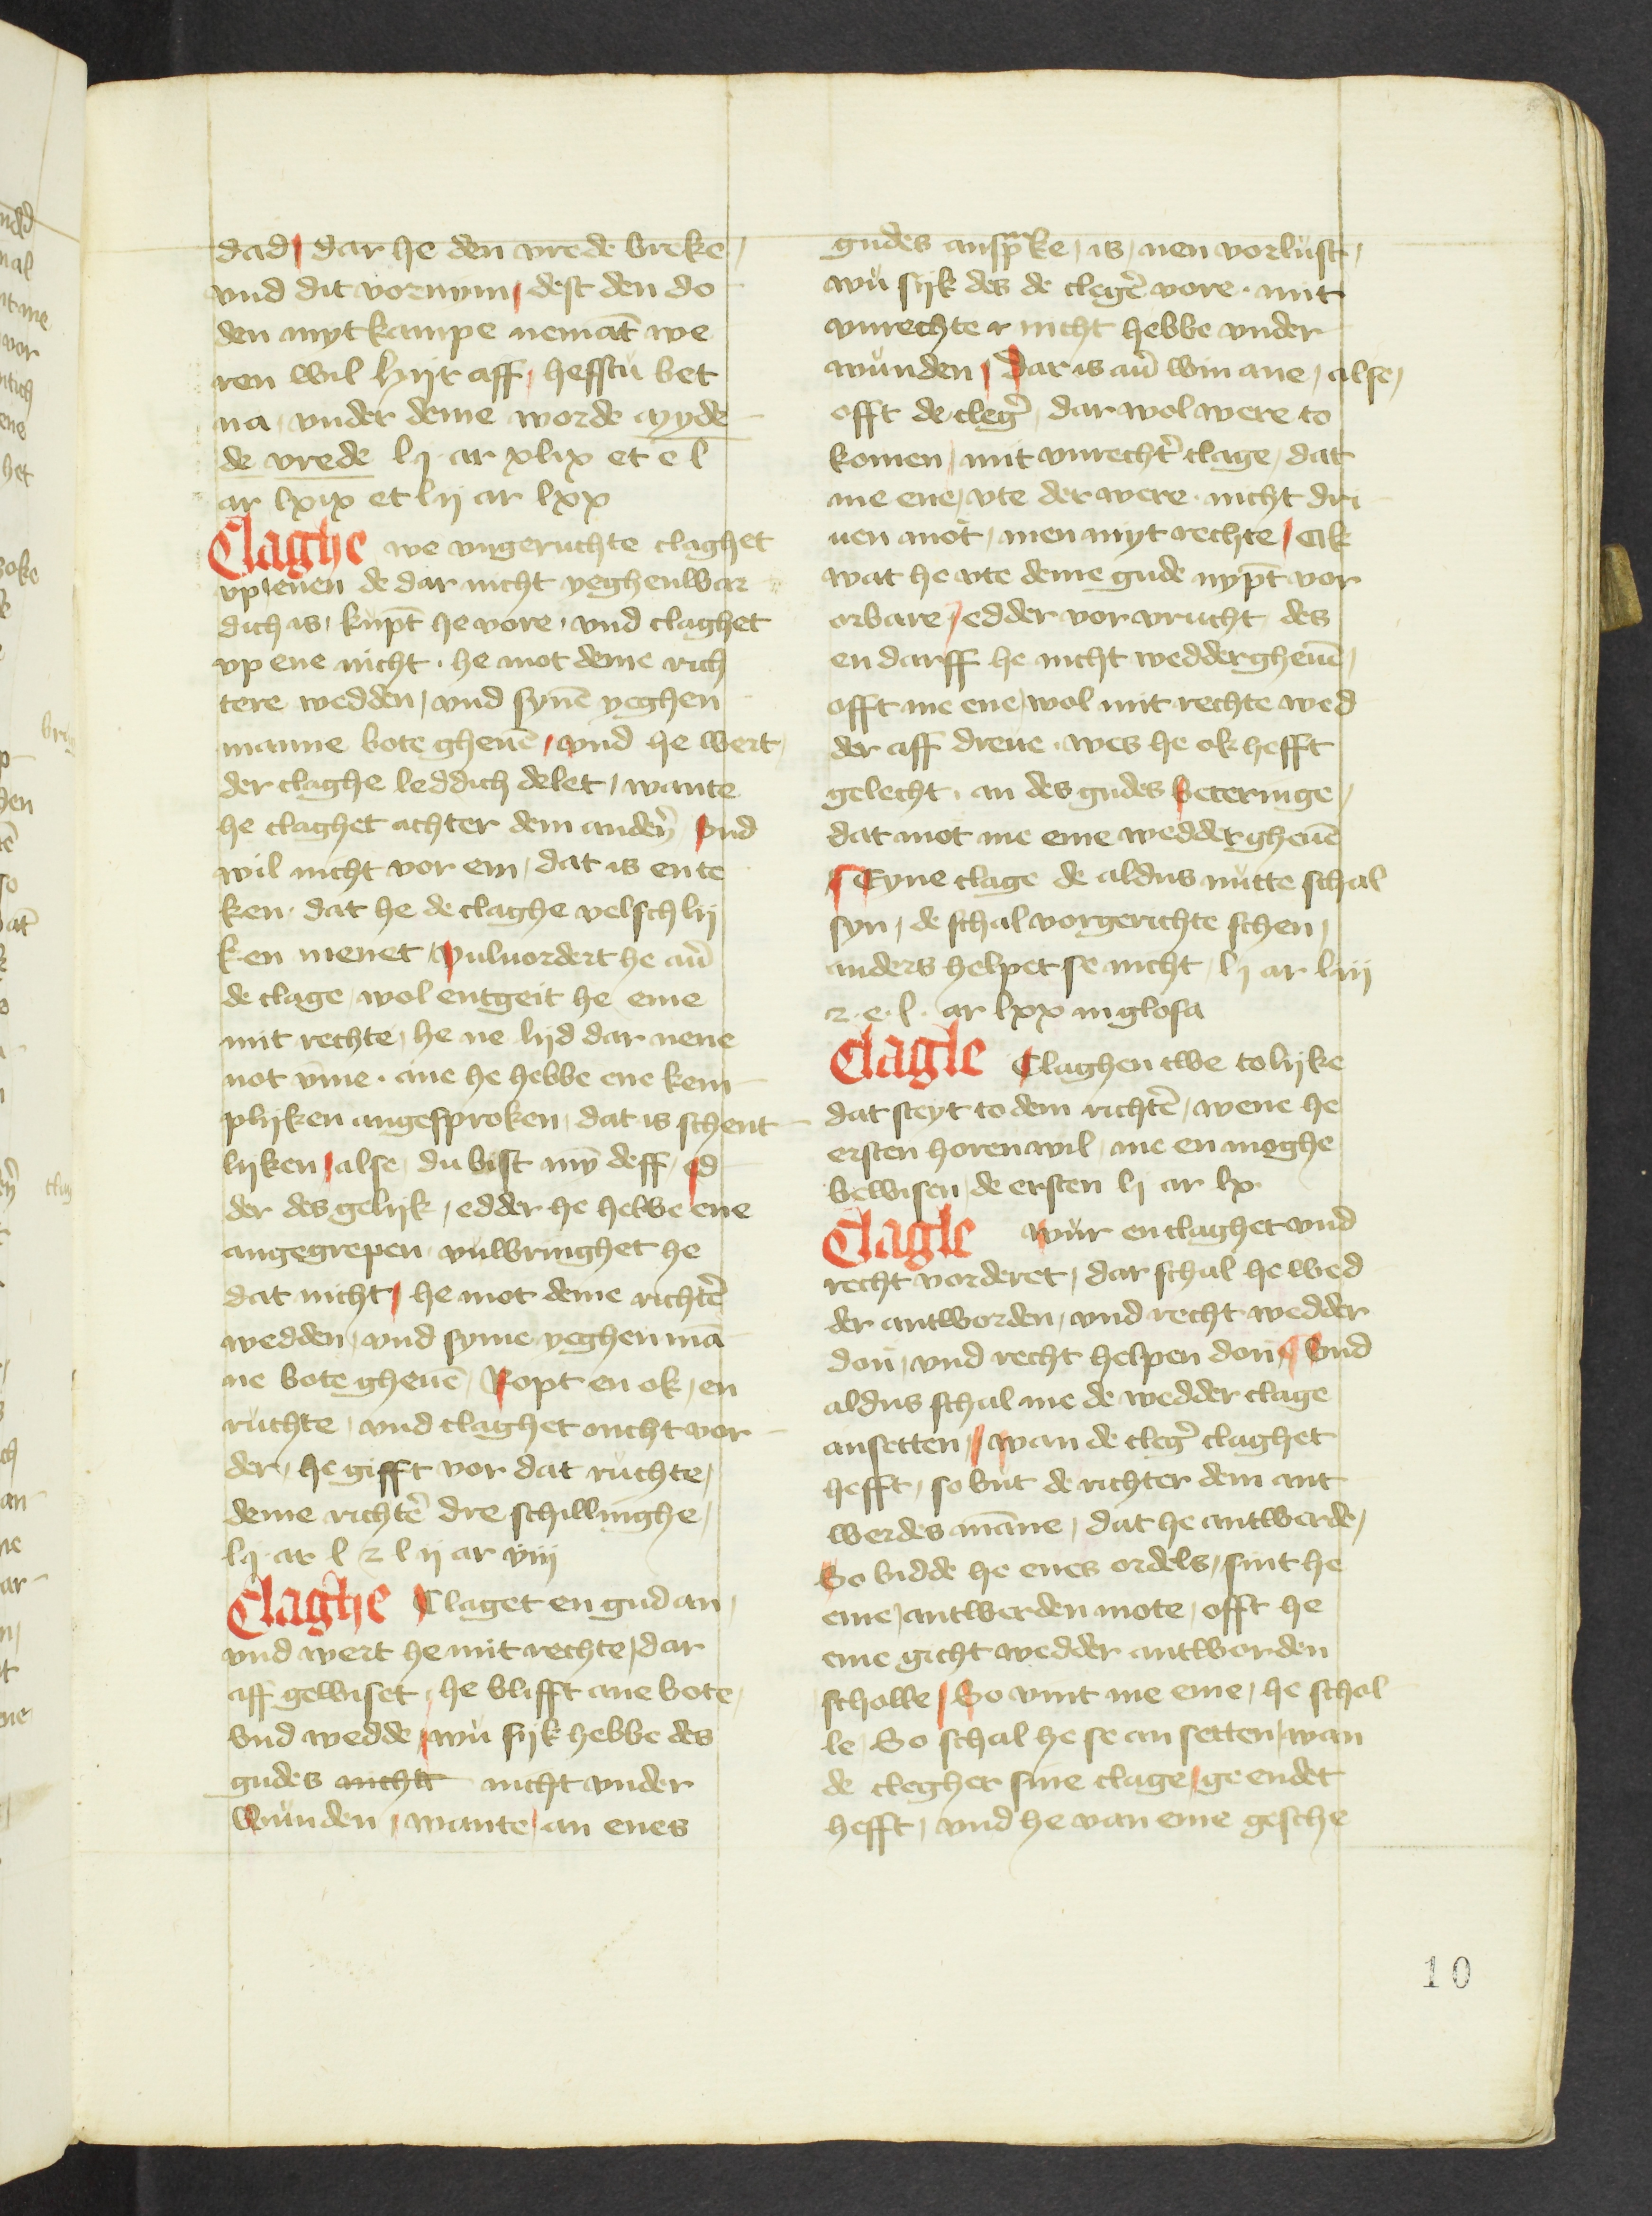 dad / dar he den vrede breke /
vnd dit vornym / dest den do
den myt kampe nemāt we
ren wil hijr aff / hefstu bet
na vnder deme worde myde
de vrede l j ar xlix et e l
ar lxix et l ij ar lxx
Claghe we vngeruchte claghet
vp ienen de dar nicht yeghenwar
dich is / kūpt he vore / vnd claghet
vp ene nicht . he mot deme rich
tere wedden / vnd synē yeghen
manne bote gheuē / vnd he wert /
der claghe leddich delet / wante
he claghet achter dem anderñ vnd
wil nicht vor em / dat is en te
ken . dat he de claghe velschlij
ken menet / vuluordert he auͤ
de clage / wol entgeit he eme
mit rechte / he ne lijd dar nene
not vm̄e . ane he hebbe ene kem
plijken angesproken / dat is schent
lijken / alse / du bist myͤ deff / ed
der des gelijk / edder he hebbe ene
angegrepen / vulbringhet he
dat nicht / he mot deme richtē
wedden / vnd syme yeghen mā
ne bote gheuē / Ropt en ok / en
ruchte / vnd claghet nicht vor
der / he gifft vor dat ruchte /
deme richtē dre schillinghe /
l j ar l z l ij ar viij
Claghe Claget en gud an /
vnd wert he mit rechte / dar
aff gewiset / he blifft ane bote /
vnd wedde / wu sijk hebbe des
gudes nicht nicht vnder
wunden / wante / an enes
gudes ansprake / is / nen vorlust /
wu sijk des de clegē vore . mit
vnrechte r nicht hebbe vnder
wunden / Dar is auͤ win ane / alse /
offt de clegͤ / dar wol were to
komen / mit vnrechtͤ clage / dat
me ene / vte der were . nicht dri
uen mot / men myt rechte / Ok
wat he vte deme gude nypt̄ vor
orbare / edder vor vrucht des
en darff he nicht weddergheuē /
offt me ene / wol mit rechte wed
der aff dreue . wes he ok hefft
gelecht . an des gudes beteringe /
dat mot me eme weddergheuē
Eyne clage de aldus nutte schal
syn / de schal vorgerichte schen /
anders helpet se nicht / l j ar liij
z . e . l . ar lxx in glosa
Clagle Claghen twe to lijke
dat steyt to dem richtē / wene he
ersten horen wil / me en moghe
bewisen / de ersten l j ar lx
Clagle wur en claghet vnd
recht vorderet / dar schal he wed
der antworden / vnd recht wedder
don / vnd recht helpen don / Vnd
aldus schal me de wedder clage
ansetten / wan de clegͤ claghet
hefft / so but de richter dem ant
werdes māne / dat he antwerde /
So bidde he enes ordels / sint he
eme / antwerden mote / offt he
eme gicht wedder antworden
scholle / So vint me eme / he schol
le / So schal he se an setten / wan
de clegher sine clage / ge endet
hefft / vnd he van eme gesche
10